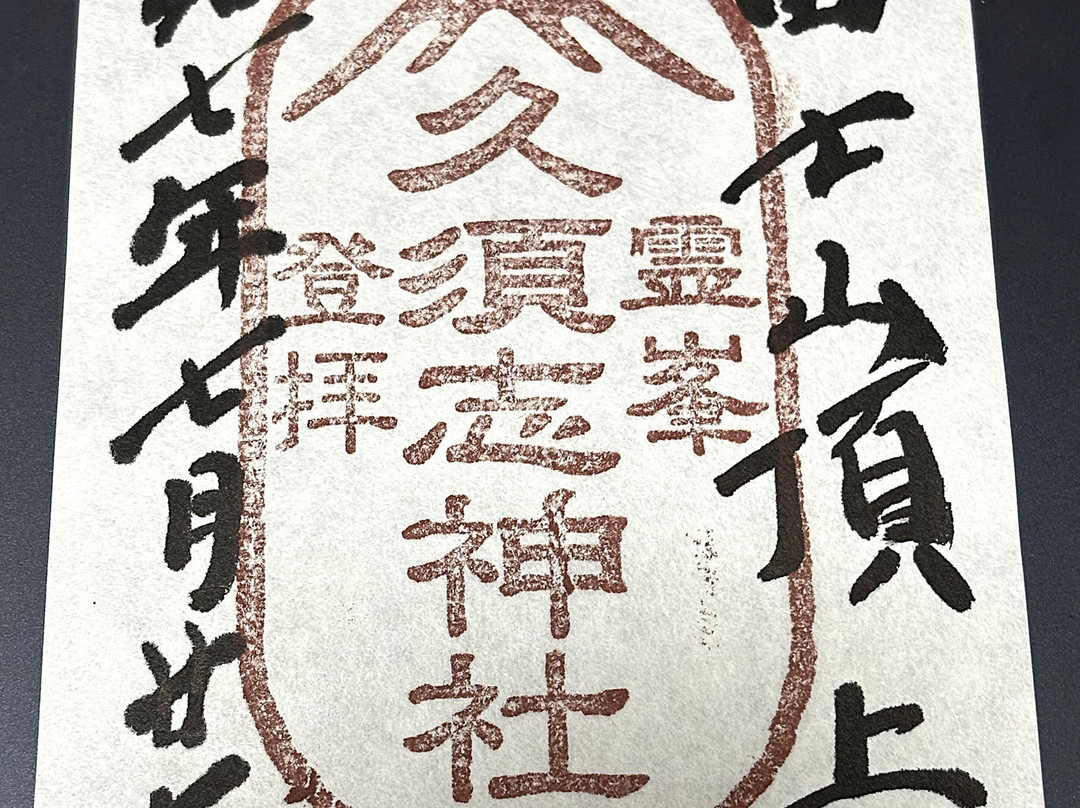 士山頂上
霊峯
久須志神社
登拝
七年七月廿